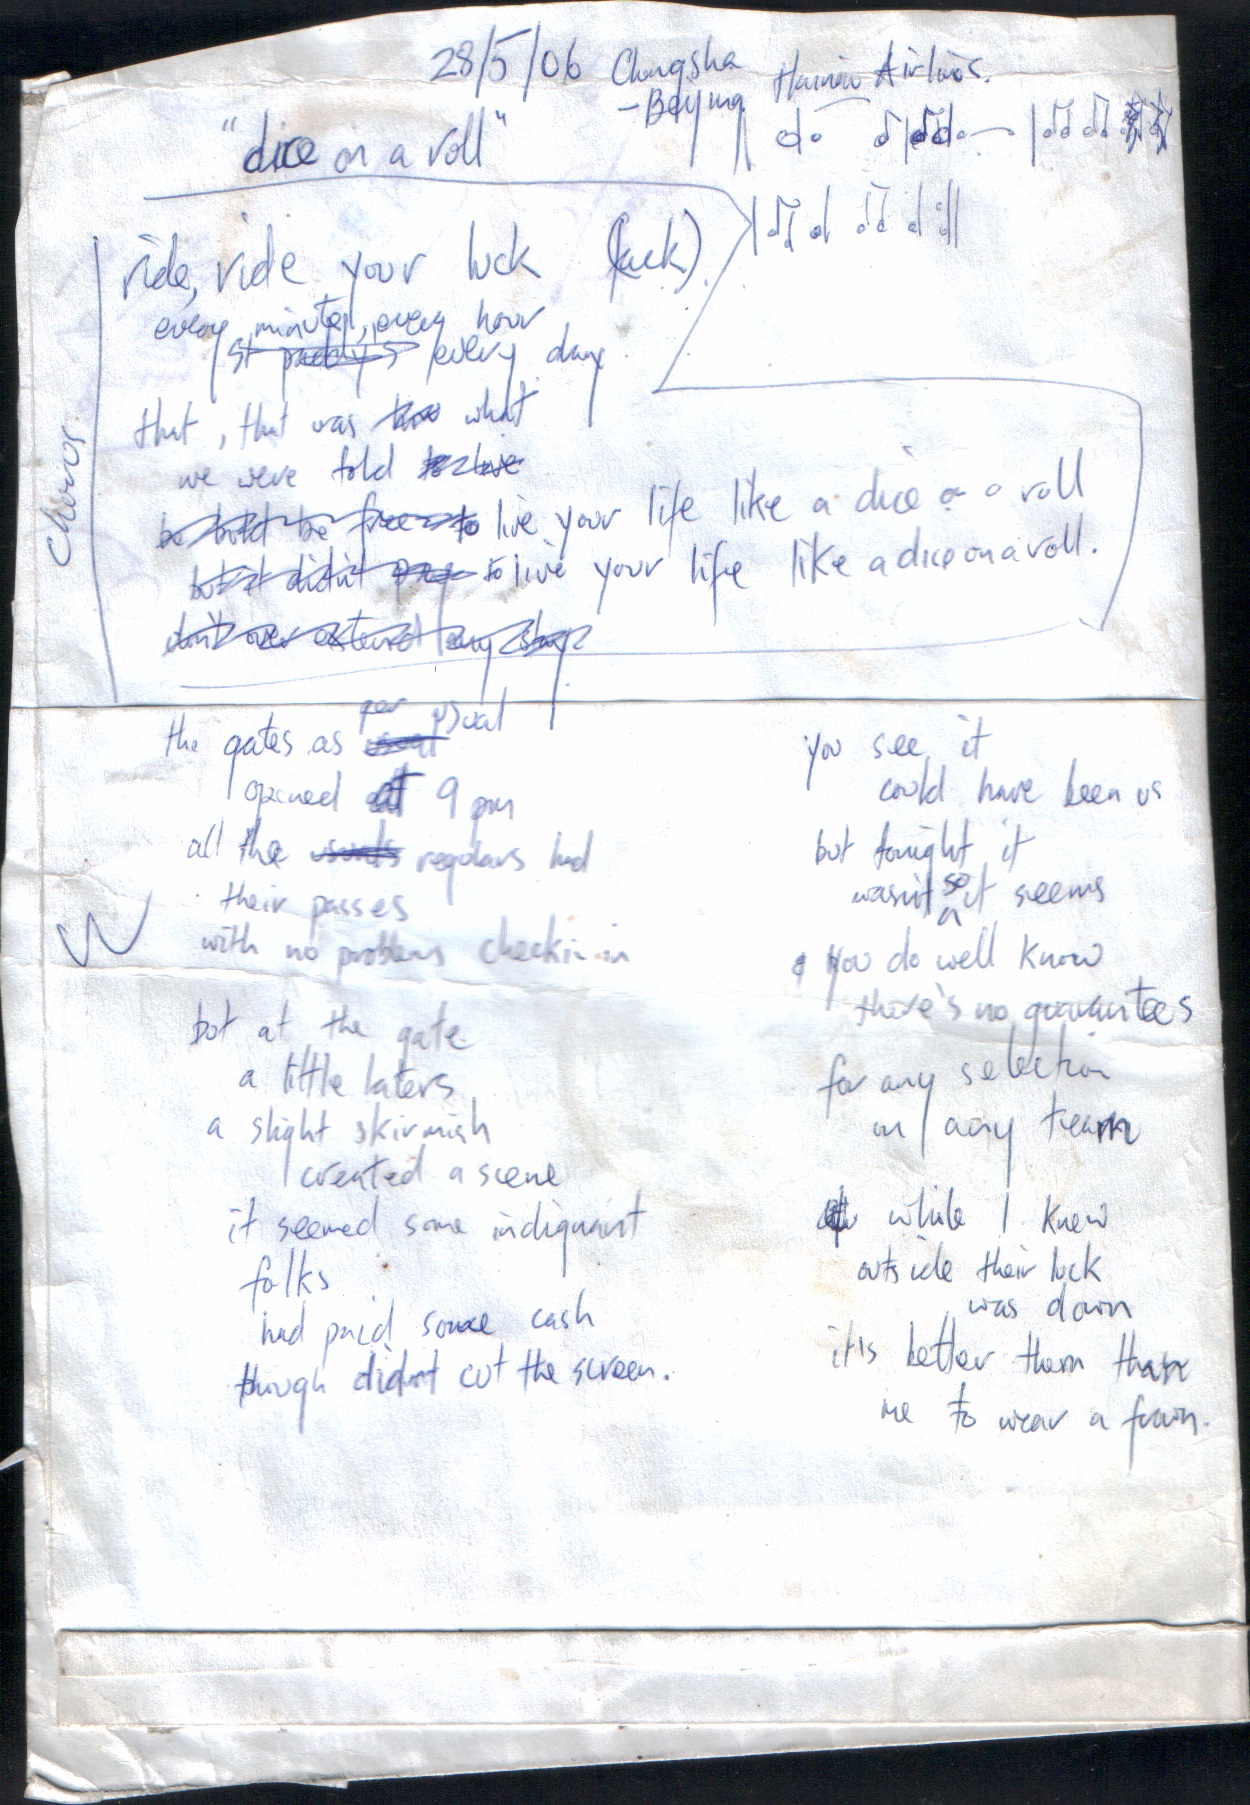 28/5/06 Changsha Hainan Airlines.
- Beijing
"dice on a roll"
Chorus.
ride, ride your luck (luck)
every minute, every hour
st paddy's every day
that, that was what
we were told to live
be bold be free to live your life like a dice on a roll
but it didn't to live your life like a dice on a roll.
don't over extend any stay
the gates as usual per usual
opened at 9 pm
all the usuals regulars had
their passes
with no problems checkin in
but at the gate
a little laters
a slight skirmish
created a scene
it seemed some indignant
folks
had paid some cash
though didnt cut the screen.
you see it
could have been us
but tonight it
wasn't so it seems
you do well know
there's no guarantees
for any selection
on any team
while I knew
outside their luck
was down
it's better them than
me to wear a frown.